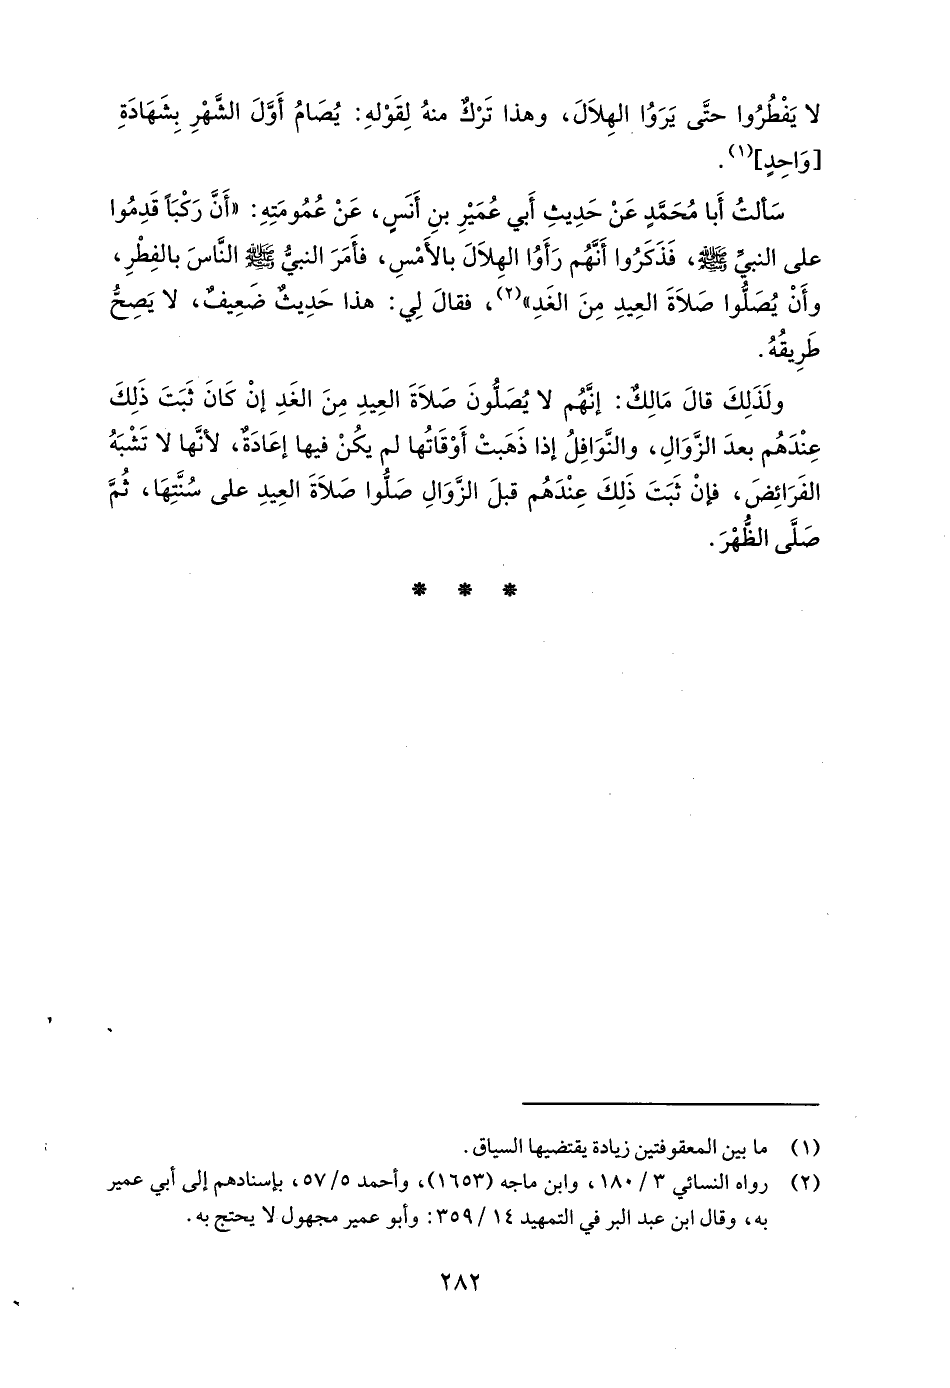 لا يَفْطُرُوا حتَّى يَرَوُا الهِلاَلَ، وهذا تَرْكٌ منهُ لِقَوْلهِ: يُصَامُ أَوَّلَ الشَّهْرِ بِشَهَادَةِ
[وَاحِدٍ](١).
سَألتُ أَبا مُحَمَّدٍ عَنْ حَدِيثِ أَبي عُمَيْرِ بنِ أَنَسٍ، عَنْ عُمُومَتِهِ: «أَنَّ رَكْبَاً قَدِمُوا
على النبيِّ ﷺ، فَذَكَرُوا أَنَّهُم رَأَوُا الهِلاَلَ بالأَمْسِ، فأَمَرَ النبيُّ ﷺ النَّاسَ بالفِطْرِ،
وأَنْ يُصَلُّوا صَلاَةَ العِيدِ مِنَ الغَدِ»(٢)، فقالَ لِي: هذا حَدِيثٌ ضَعِيفٌ، لا يَصِحُّ
طَرِيقُهُ.
ولَذَلِكَ قالَ مَالِكٌ: إنَّهُم لا يُصَلُّونَ صَلاَةَ العِيدِ مِنَ الغَدِ إنْ كَانَ ثَبَتَ ذَلِكَ
عِنْدَهُم بعدَ الزَّوَالِ، والنَّوَافِلُ إذا ذَهَبتْ أَوْقَاتُها لم يكُنْ فيها إعَادَةٌ، لأنَّها لا تَشْبَهُ
الفَرَائِضَ، فإنْ ثَبَتَ ذَلِكَ عِنْدَهُم قبلَ الزَّوَالِ صَلُّوا صَلاَةَ العِيدِ على سُنَّتِهَا، ثُمَّ
صَلَّى الظُّهْرَ.
* * *
(١) ما بين المعقوفتين زيادة يقتضيها السياق.
(٢) رواه النسائي ٣/ ١٨٠، وابن ماجه (١٦٥٣)، وأحمد ٥/ ٥٧، بإسنادهم إلى أبي عمير
به، وقال ابن عبد البر في التمهيد ١٤/ ٣٥٩: وأبو عمير مجهول لا يحتج به.
٢٨٢